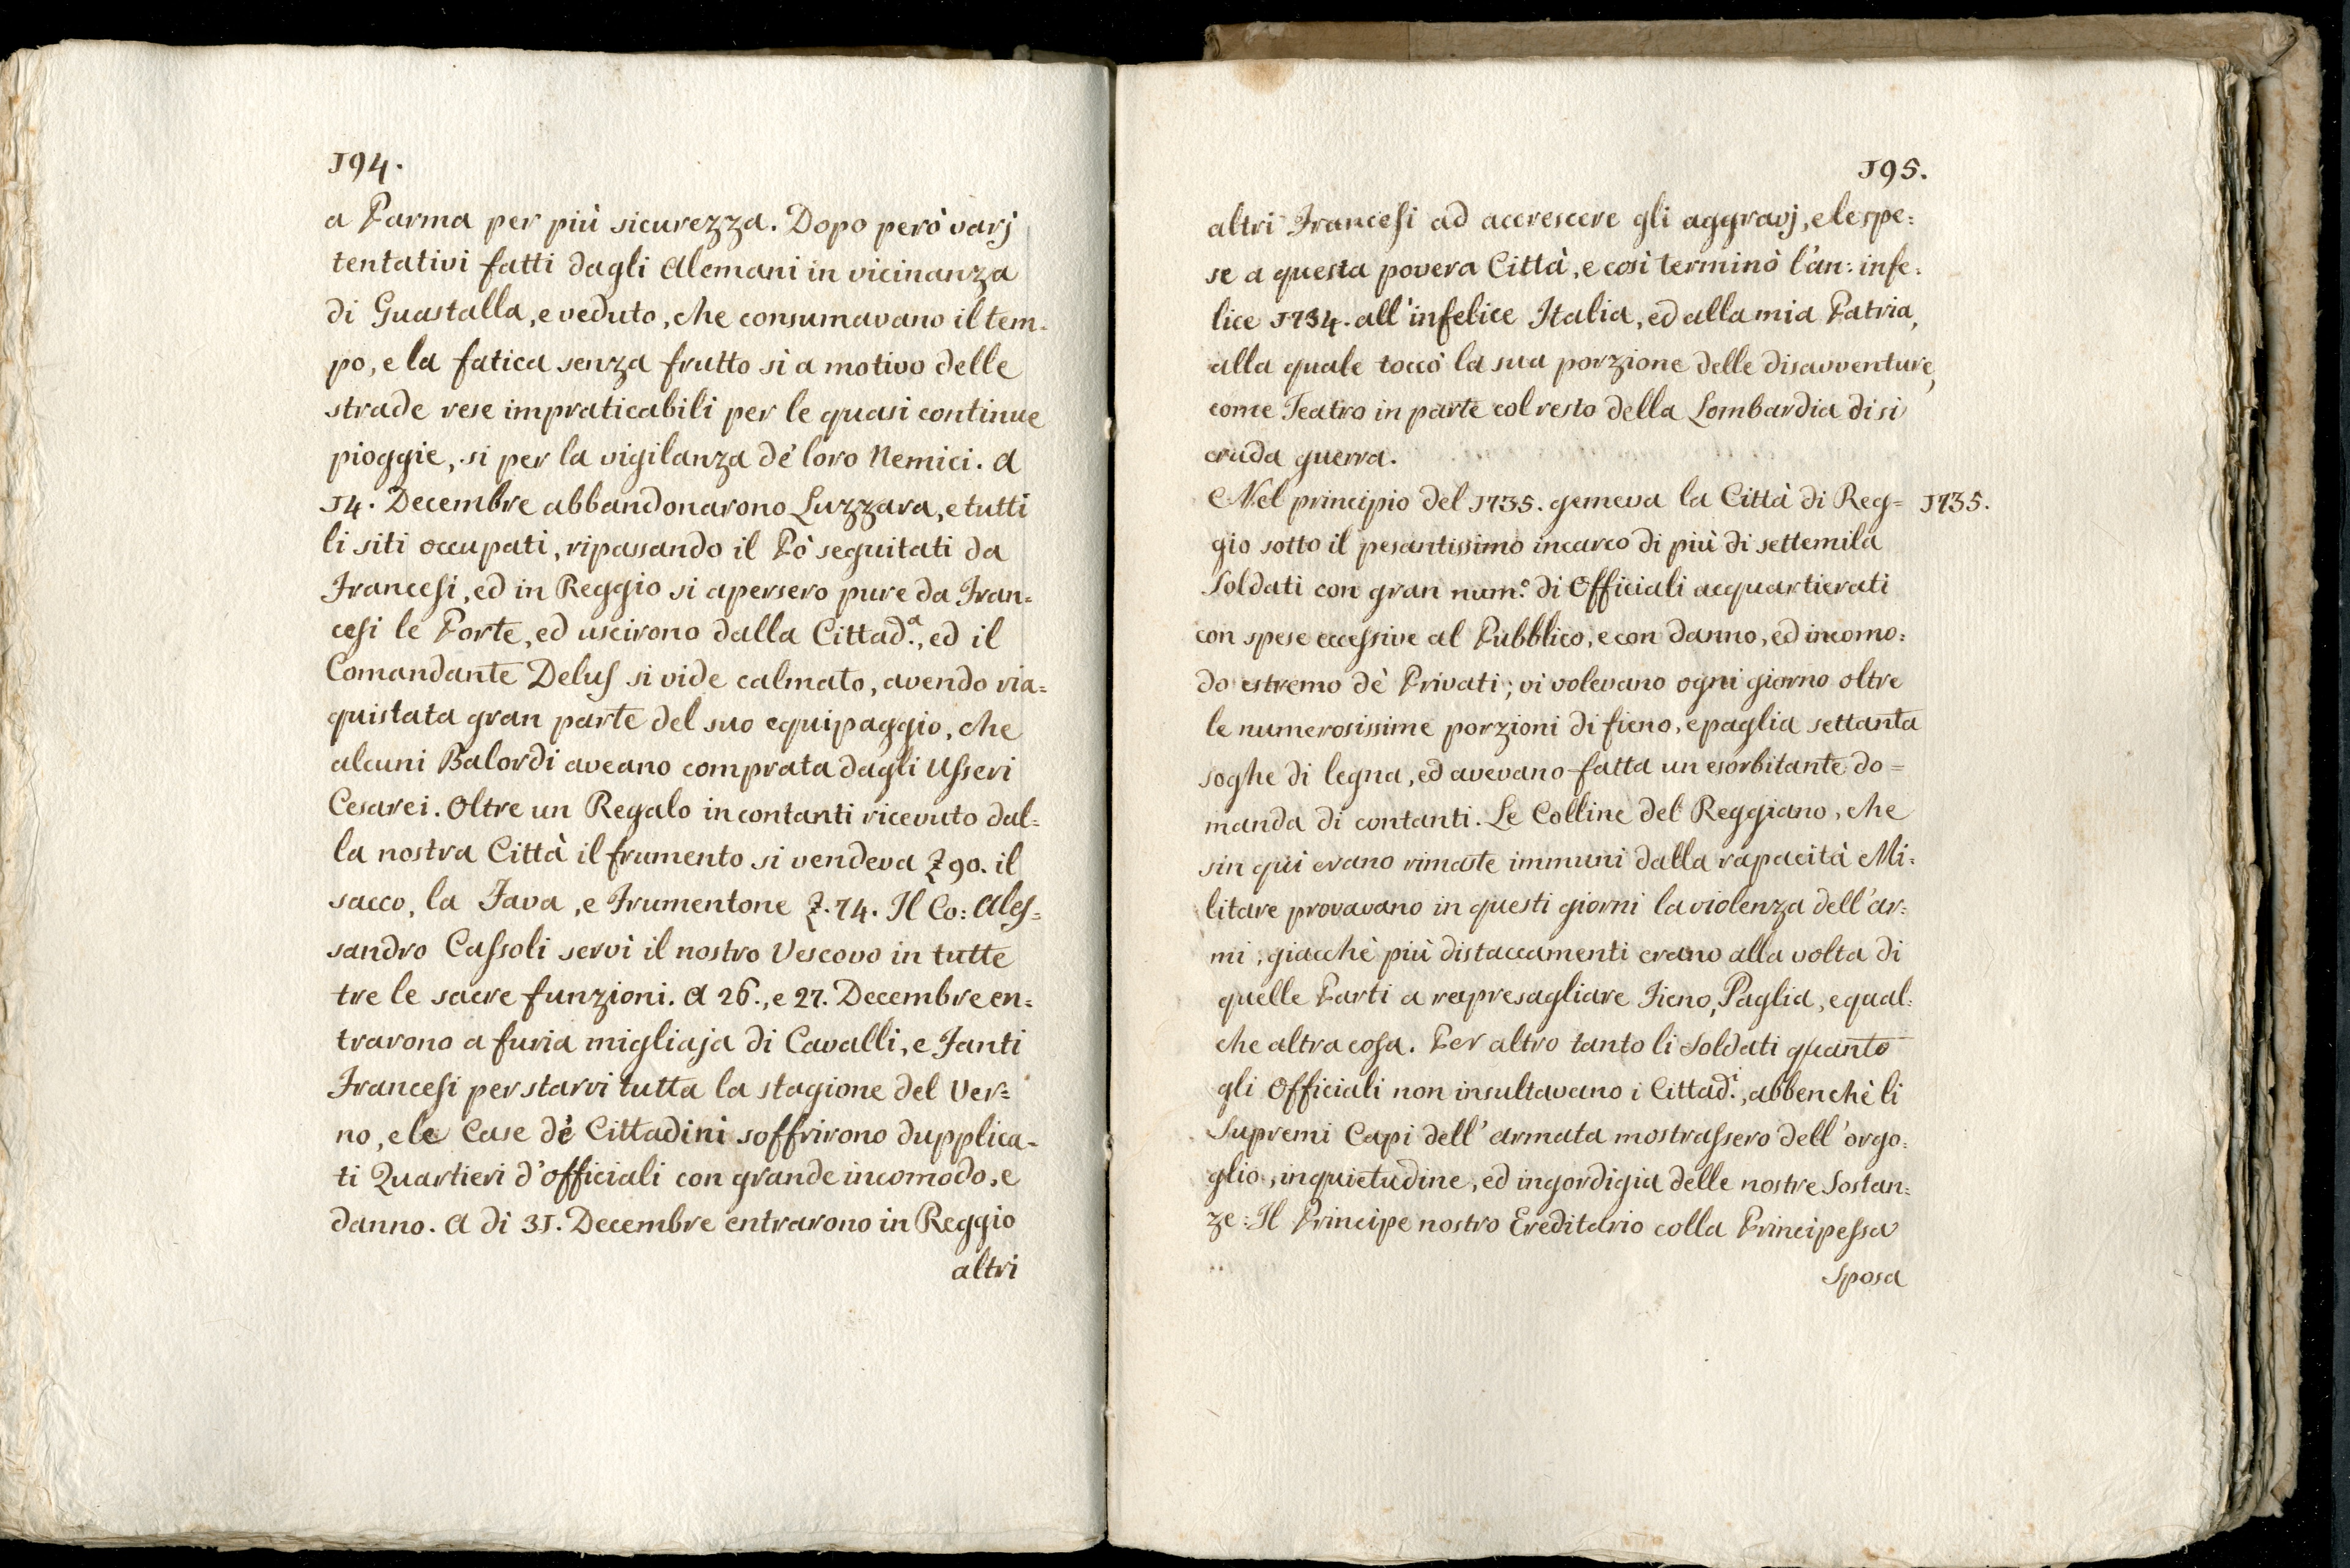 194.
a Parma per più sicurezza. Dopo però varj
tentativi fatti dagli Alemani in vicinanza
di Guastalla, e veduto, che consumavano il tem-
po, e la fatica senza frutto sì a motivo delle
strade rese impraticabili per le quasi continue
pioggie, sì per la vigilanza de' loro Nemici. A
14. Decembre abbandonarono Luzzara, e tutti
li siti occupati, ripassando il Pò seguitati da
Francesi, ed in Reggio si apersero pure da Fran=
cesi le Porte, ed uscirono dalla Cittad.a, ed il
Comandante Delus si vide calmato, avendo ria=
quistata gran parte del suo equipaggio, che
alcuni Balordi aveano comprata dagli Usseri
Cesarei. Oltre un Regalo in contanti ricevuto dal=
la nostra Città il frumento si vendeva ₤ 90. il
sacco, la Fava, e Frumentone ₤. 74. Il Co: Ales=
sandro Cassoli servì il nostro Vescovo in tutte
tre le sacre funzioni. A 26., e 27. Decembre en=
trarono a furia migliaja di Cavalli, e Fanti
Francesi per starvi tutta la stagione del Ver=
no, e le Case de' Cittadini soffrirono dupplica-
ti Quartieri d'officiali con grande incomodo, e
danno. A di 31. Decembre entrarono in Reggio
altri
195.
altri Francesi ad accrescere gli aggravj, e le spe=
se a questa povera Città, e così terminò l'an: infe=
lice 1734. all'infelice Italia, ed alla mia Patria,
alla quale toccò la sua porzione delle disavventure,
come Teatro in parte col resto della Lombardia di sì
cruda guerra.
Nel principio del 1735. gemeva la Città di Reg= 1735.
gio sotto il pesantissimo incarco di più di settemila
Soldati con gran num.o di Officiali acquartierati
con spese eccessive al Pubblico, e con danno, ed incomo=
do estremo de' Privati; vi volevano ogni giorno oltre
le numerosissime porzioni di fieno, e paglia settanta
soghe di legna, ed avevano fatta un esorbitante do=
manda di contanti. Le Colline del Reggiano, che
sin quì erano rimaste immuni dalla rapacità Mi=
litare provavano in questi giorni la violenza dell'ar=
mi, giacchè più distaccamenti erano alla volta di
quelle Parti a rapresagliare Fieno, Paglia, e qual=
che altra cosa. Per altro tanto li Soldati quanto
gli Officiali non insultavano i Cittad.i, abbenchè li
Supremi Capi dell'armata mostrassero dell'orgo=
glio, inquietudine, ed ingordigia delle nostre Sostan=
ze: Il Principe nostro Ereditario colla Principessa
Sposa